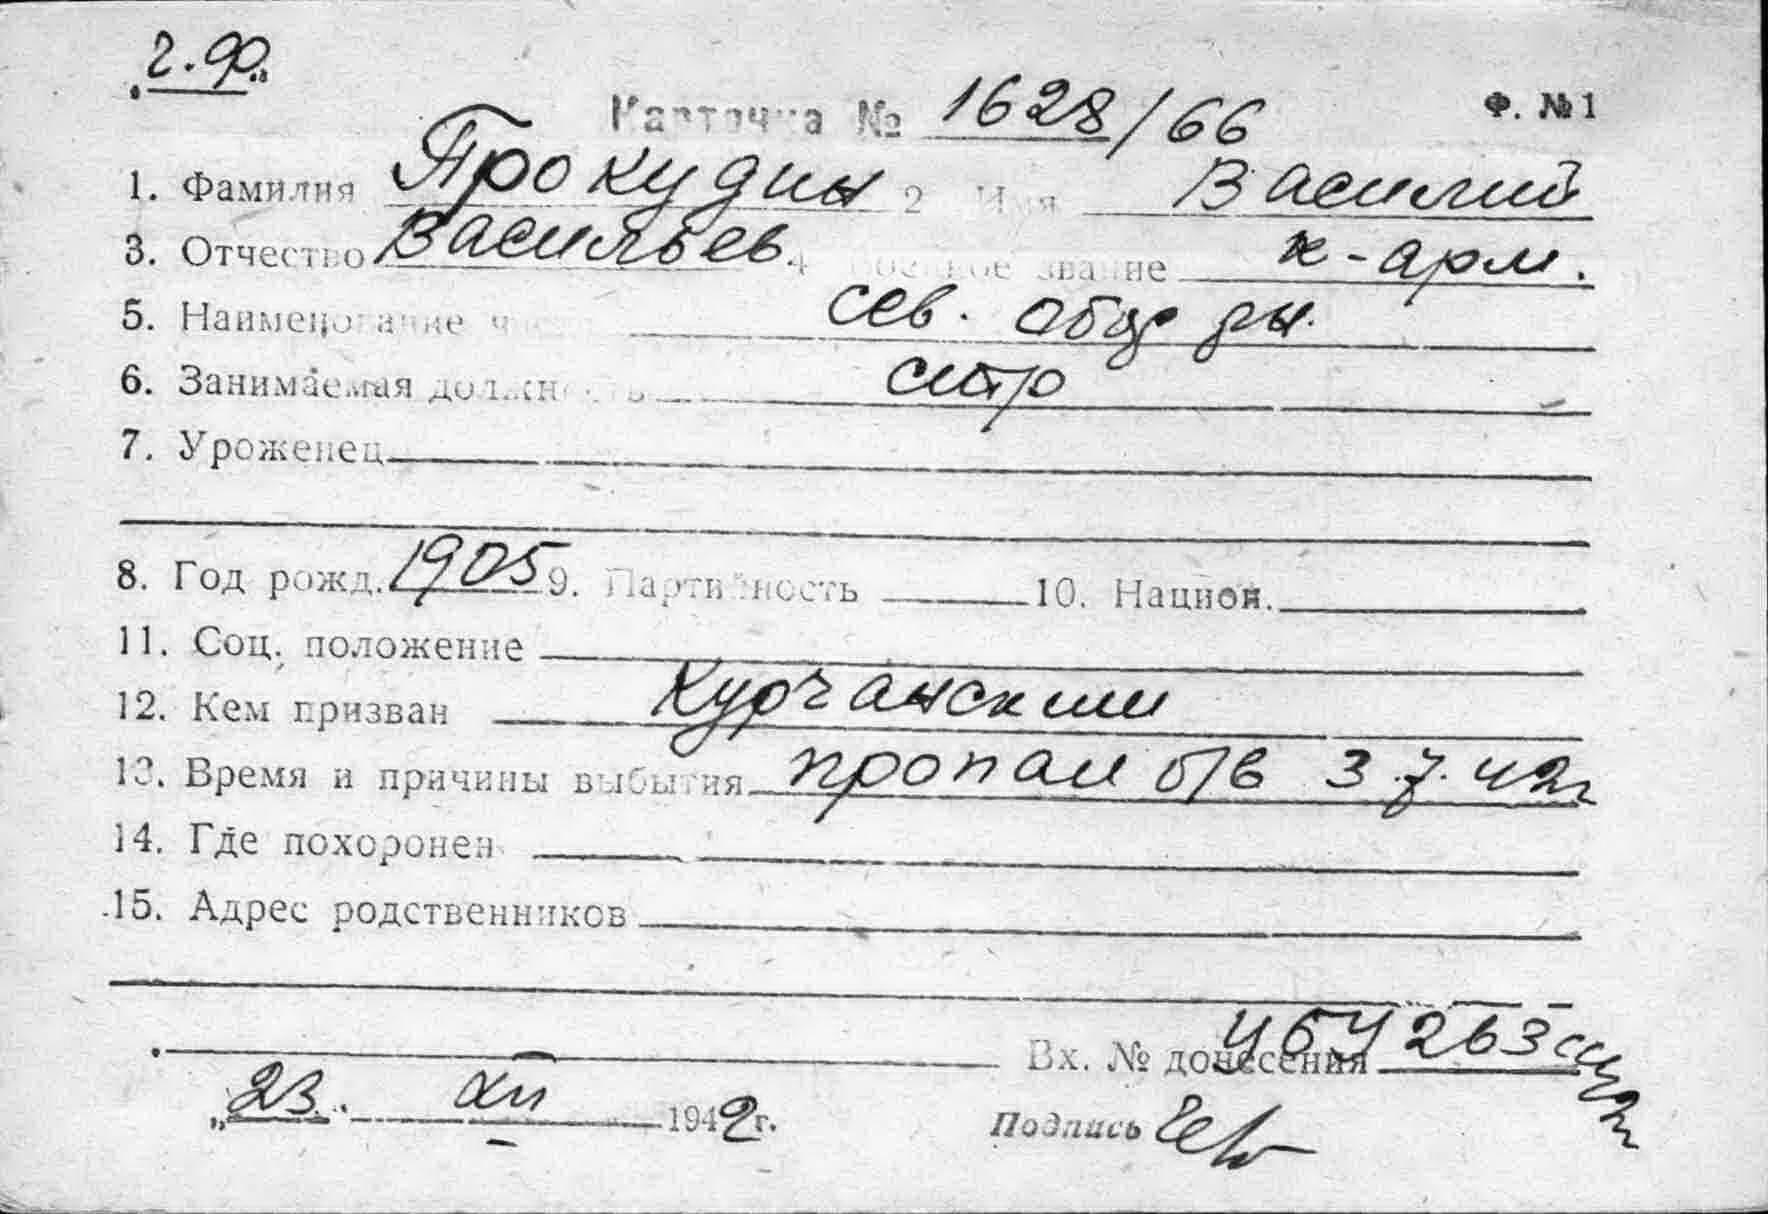 ч.ф.
Карточка № 1628/66 Ф. №1
1. Фамилия Прокудин 2 Имя Василий
3. Отчество Васильев. 4 Военное звание к-арм.
5. Наименование части сев. обще ды.
6. Занимаемая должность стр
7. Уроженец
8. Год рожд. 1905 9. Партийность 10. Национ.
11. Соц. положение
12. Кем призван Курчанским
13. Время и причины выбытия пропал б/в 3.7.42г
14. Где похоронен
15. Адрес родственников
Вх. № донесения
„23" XII 1942г.
Подпись